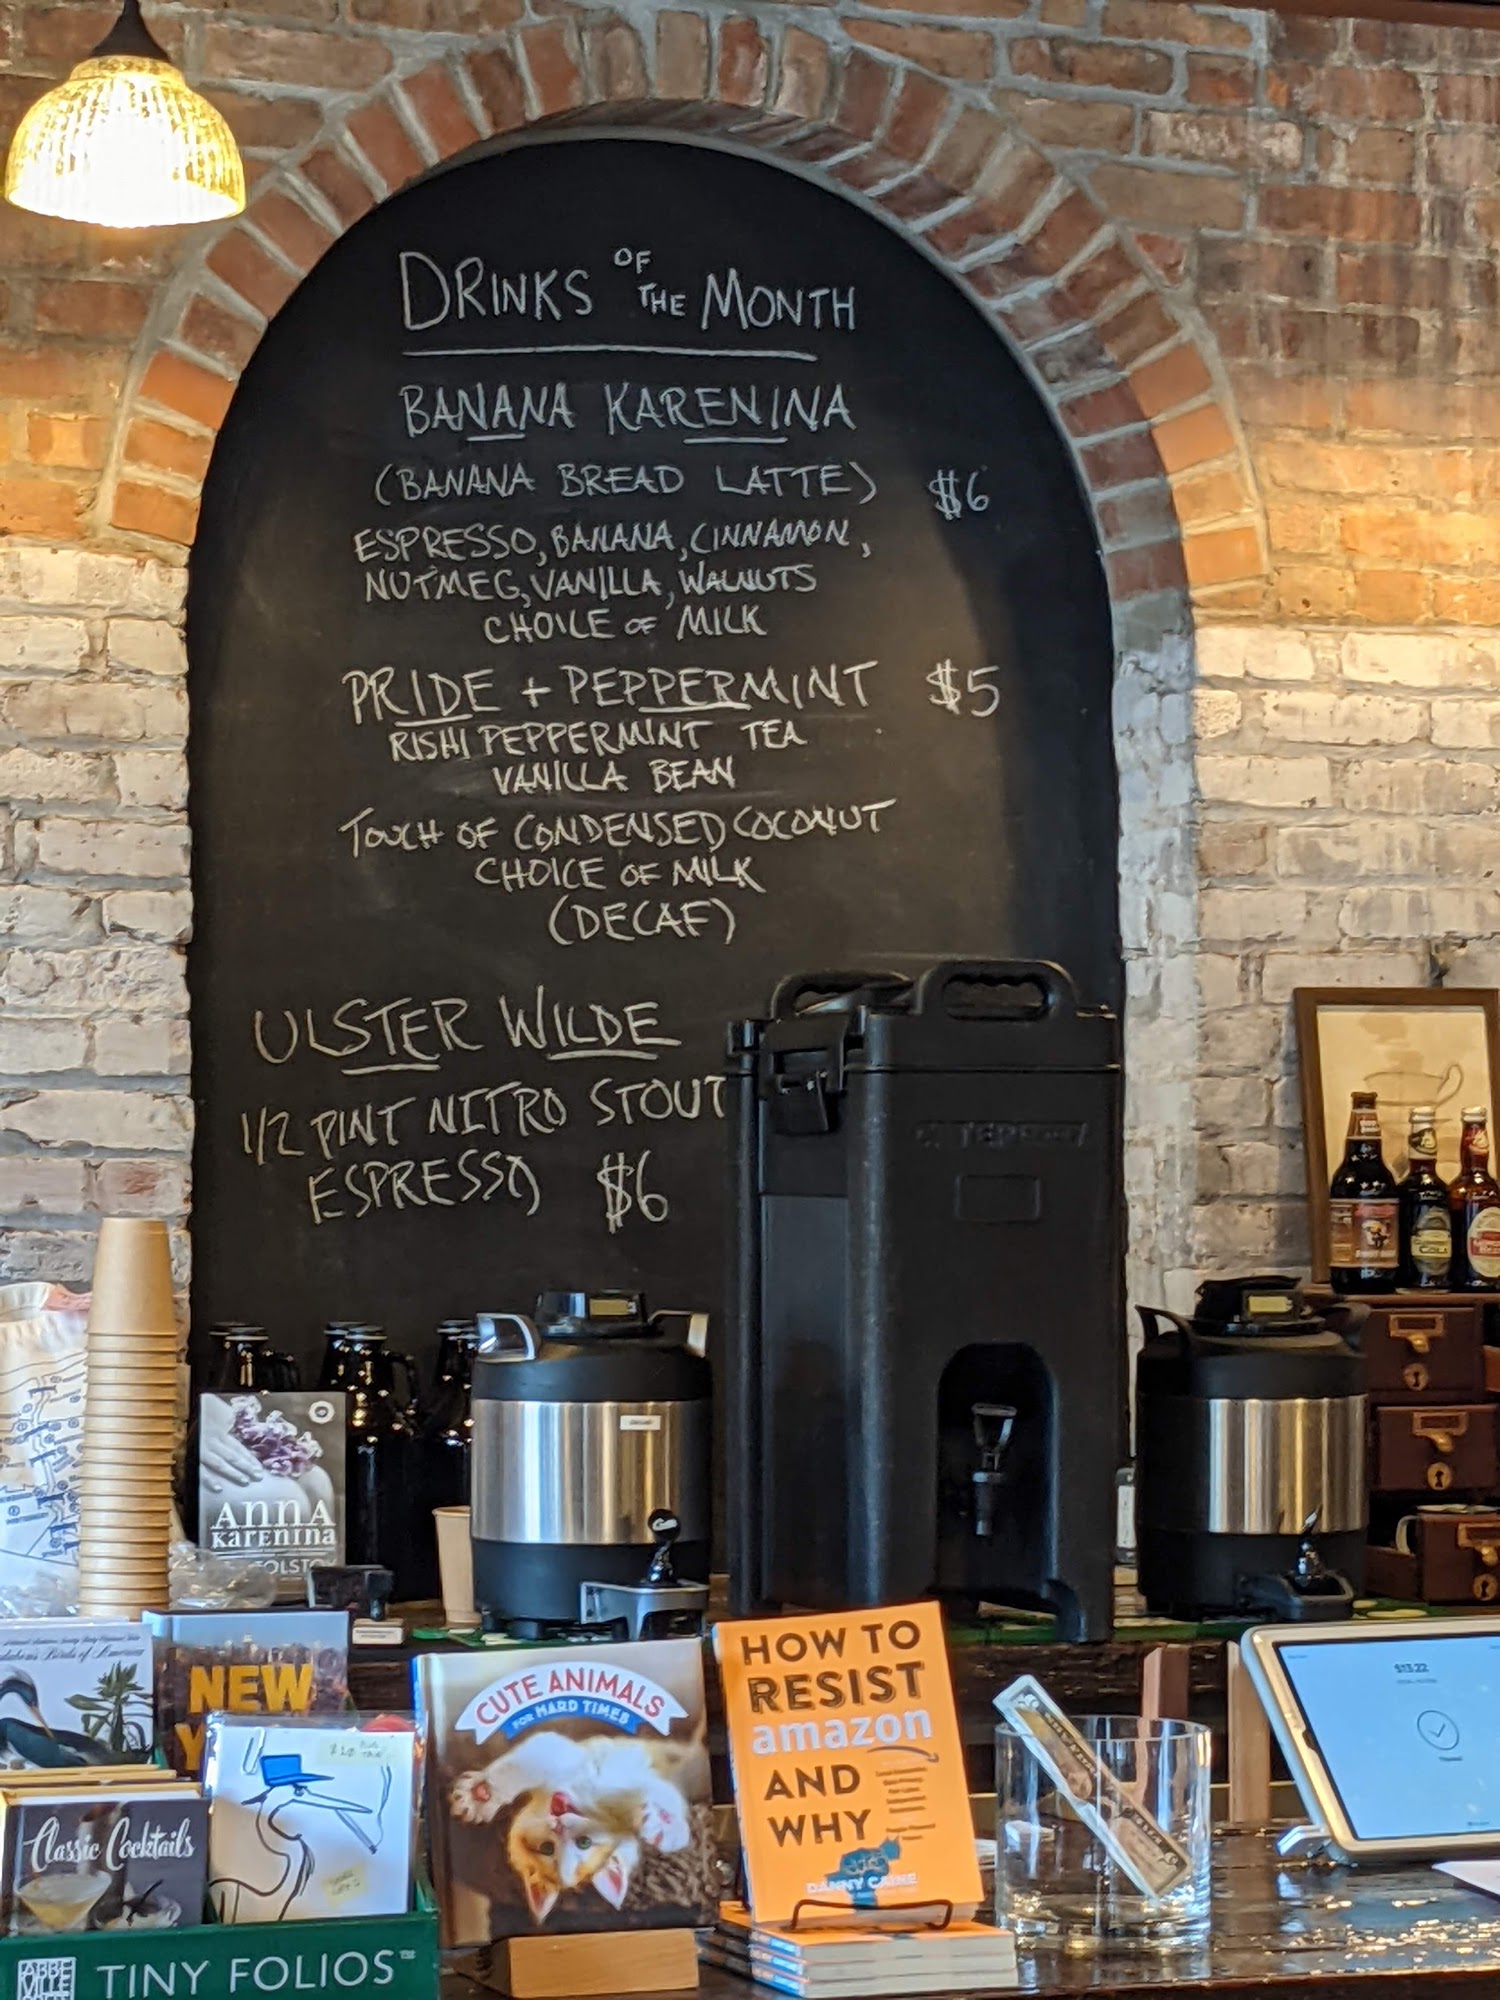 DRINKS OF THE MONTH
BANANA KARENINA
(BANANA BREAD LATTE) $6
ESPRESSO, BANANA, CINNAMON,
NUTMEG, VANILLA, WALNUTS
CHOICE OF MILK
PRIDE + PEPPERMINT $5
RISHI PEPPERMINT TEA
VANILLA BEAN
TOUCH OF CONDENSED COCONUT
CHOICE OF MILK
(DECAF)
ULSTER WILDE
1/2 PINT NITRO STOUT
ESPRESSO $6
ANNA
KARENINA
TOLSTOY
NEW
CUTE ANIMALS
FOR HARD TIMES
HOW TO
RESIST
amazon
AND
WHY
DANNY CAINE
$13.22
Birds of America
Classic Cocktails
TINY FOLIOS™
COLA